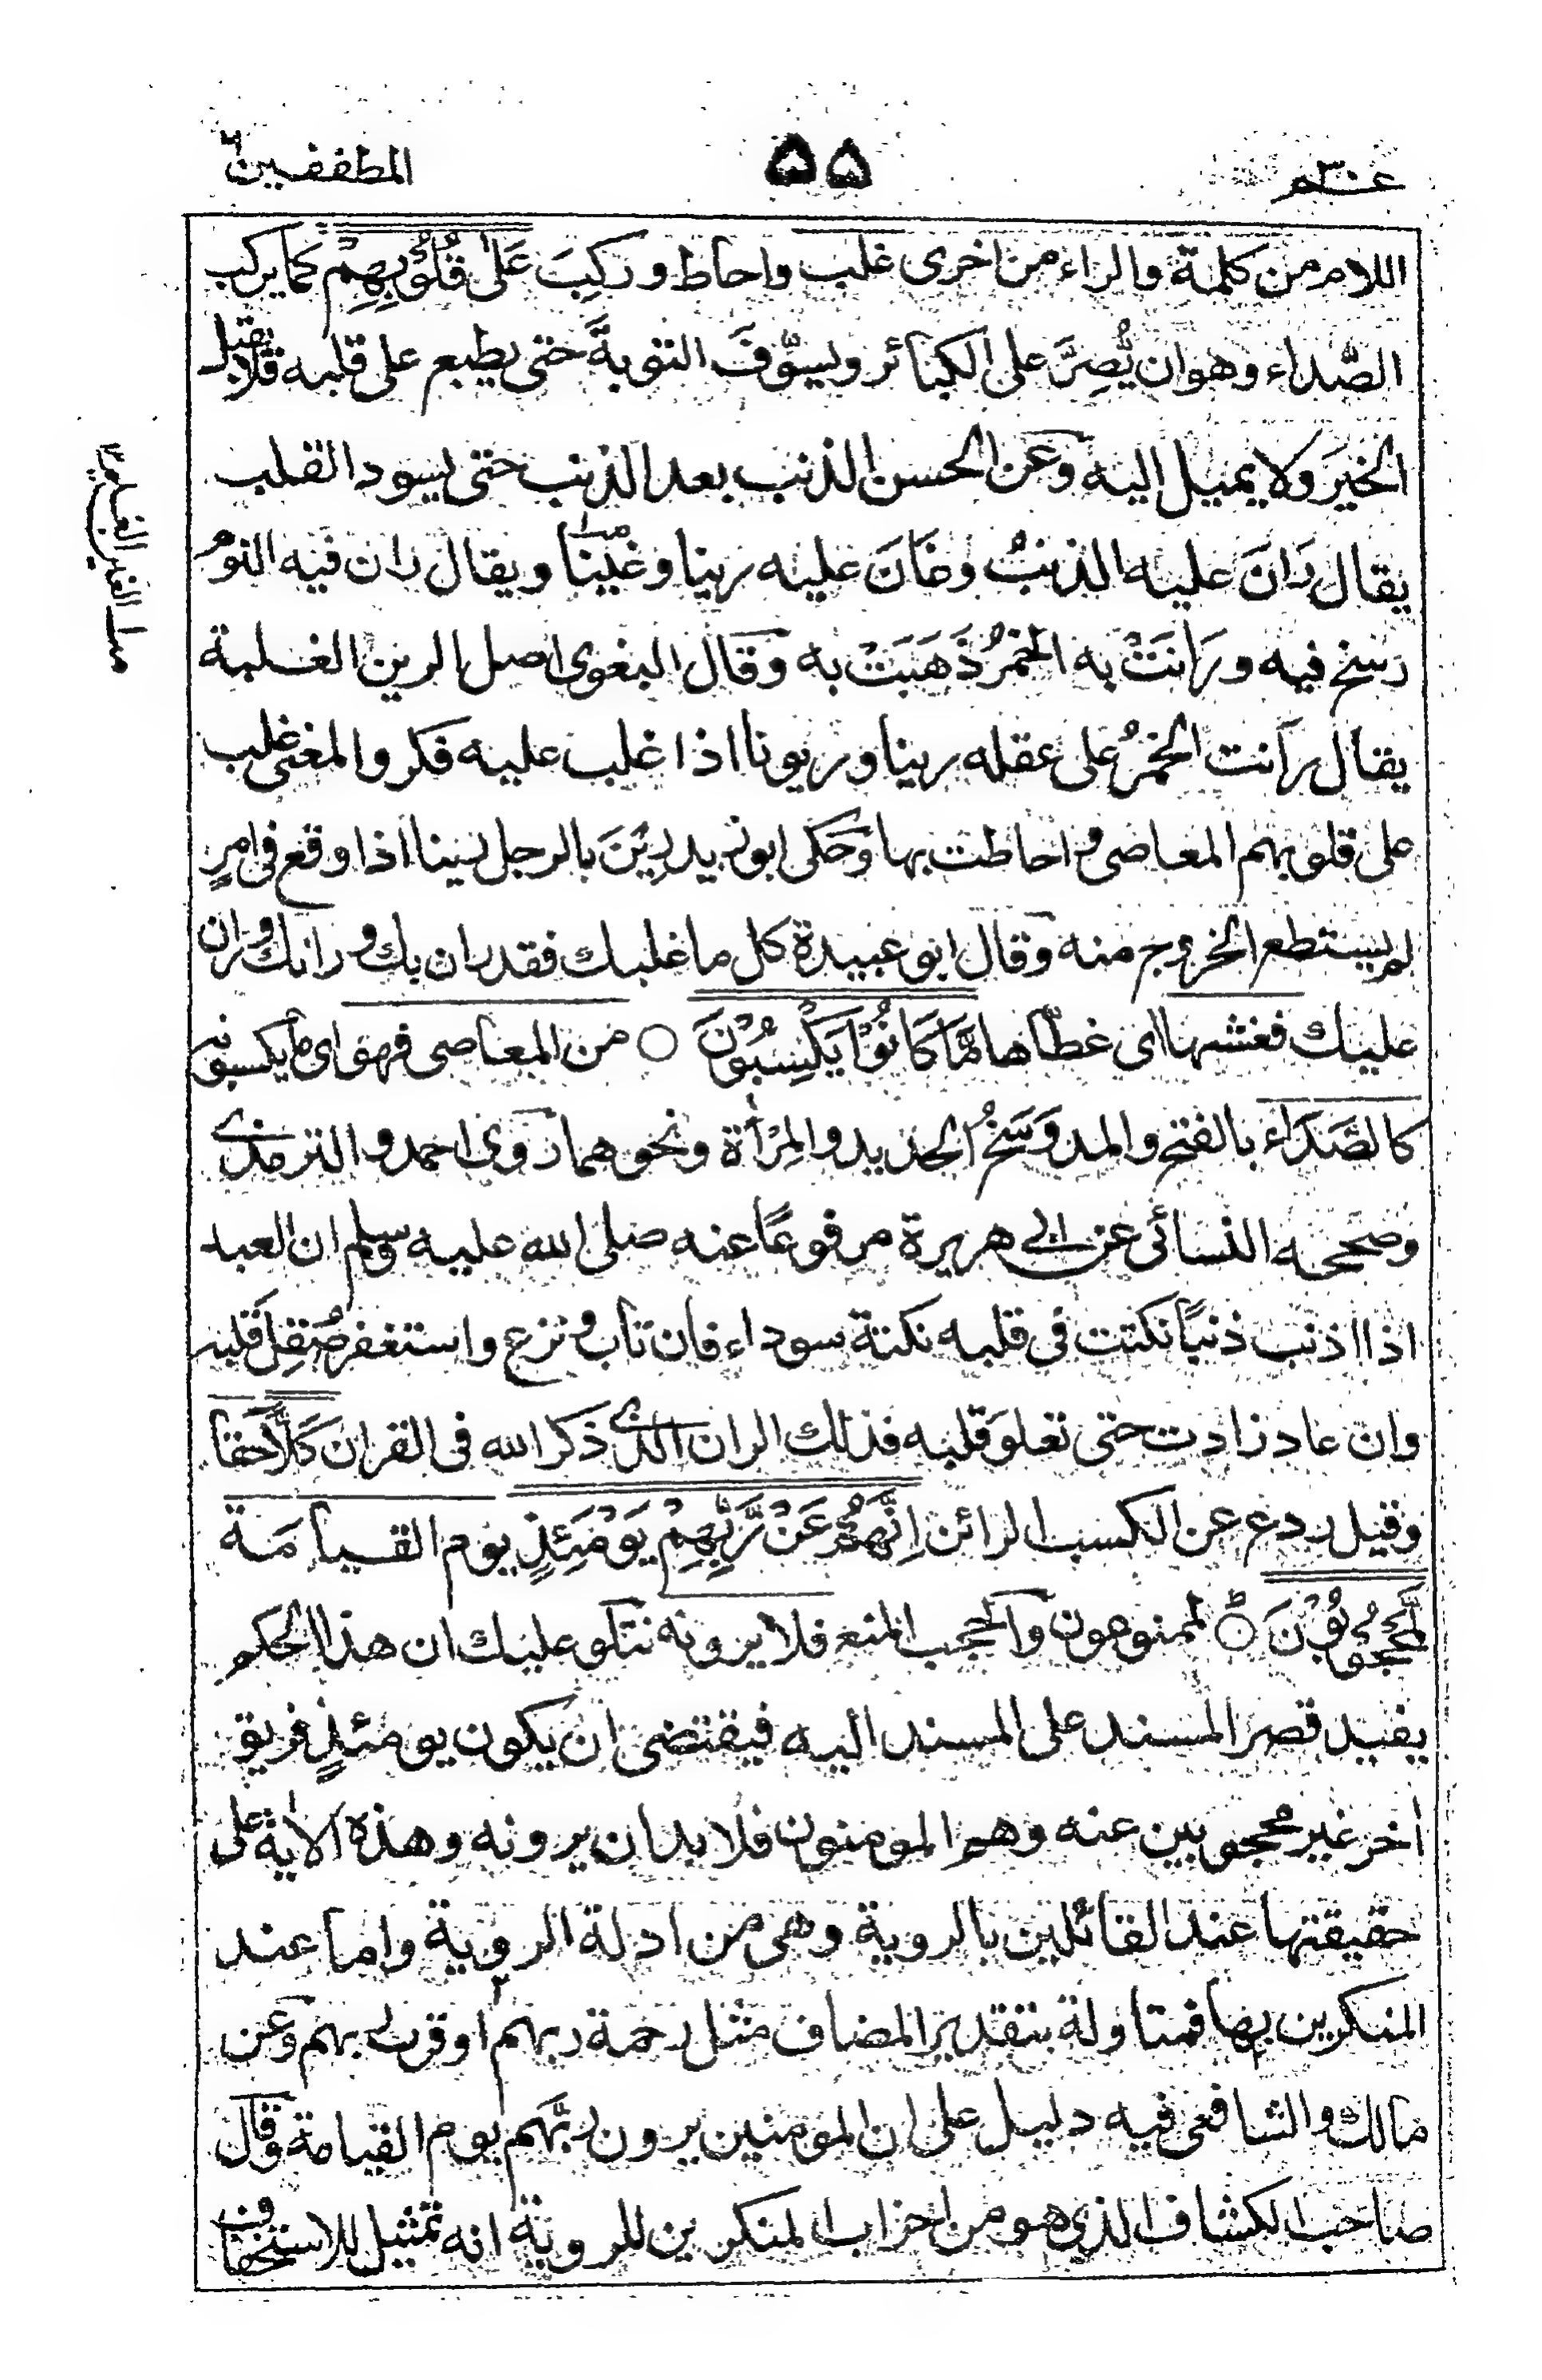 عم ٣٠
۵۵
المطففين
اللام من كلمة والراء من اخرى غلب واحاط وركِبَ عَلٰى قُلُوْبِهِمْ كما يركب
الصّداء وهو ان يُّصِرَّ على الكبائر ويسوّفَ التوبةَ حتى يطبع على قلبه فلا يقبل
الخيرَ ولا يميل اليه وعن الحسن الذنب بعد الذنب حتى يسود القلب
يقال رَانَ عليه الذنبُ وغَانَ عليه رينا وغَيْنا ويقال ران فيه النوم
رسخ فيه ورَانَتْ به الخمرُ ذَهَبَتْ به وقال البغوى اصل الرين الغلبة
يقال رانت الخمرُ على عقله رينا وريونا اذا غلب عليه فكر والمعنى غلب
على قلوبهم المعاصى واحاطت بها وحكى ابو زيد رِيْنَ بالرجل رينا اذا وقع فى امرٍ
لم يستطع الخروج منه وقال ابو عبيدة كل ما غلبك فقد ران بك ورانك وران
عليك فغشيها اى غطّاها مَّا كَانُوْا يَكْسِبُوْنَ ○ من المعاصى فهو اى ما يكسبونه
كالصَّدَاء بالفتح والمد وَسَخُ الحديد والمِرْأة ونحوهما روى احمد والترمذى
وصححه النسائى عن ابى هريرة مرفوعًا عنه صلى الله عليه وسلم ان العبد
اذا اذنب ذنبًا نكتت فى قلبه نكتة سوداء فان تاب ونزع واستغفر صُقِلَ قلبه
وان عاد زادت حتى تعلو قلبه فذلك الران الذى ذكر الله فى القران كَلَّآ حقا
وقيل ردع عن الكسب الرائن اِنَّهُمْ عَنْ رَّبِّهِمْ يَوْمَئِذٍ يوم القيامة
لَّمَحْجُوْبُوْنَ ○ؕ لممنوعون والحجب المنع فلا يرونه نتلو عليك ان هذا الحكم
يفيد قصر المسند على المسند اليه فيقتضى ان يكون يومئذٍ فريق
اخر غير محجوبين عنه وهم المومنون فلا بد ان يرونه وهذه الاية على
حقيقتها عند القائلين بالروية وهى من ادلة الروية واما عند
المنكرين بها فمتاولة بتقدير المضاف مثل رحمة ربهم او قرب ربهم وعن
مالك والشافعى فيه دليل على ان المومنين يرون ربّهم يوم القيامة وقال
صاحب الكشاف الذى هو من احزاب المنكرين للروية انه تمثيل للاستخفاف